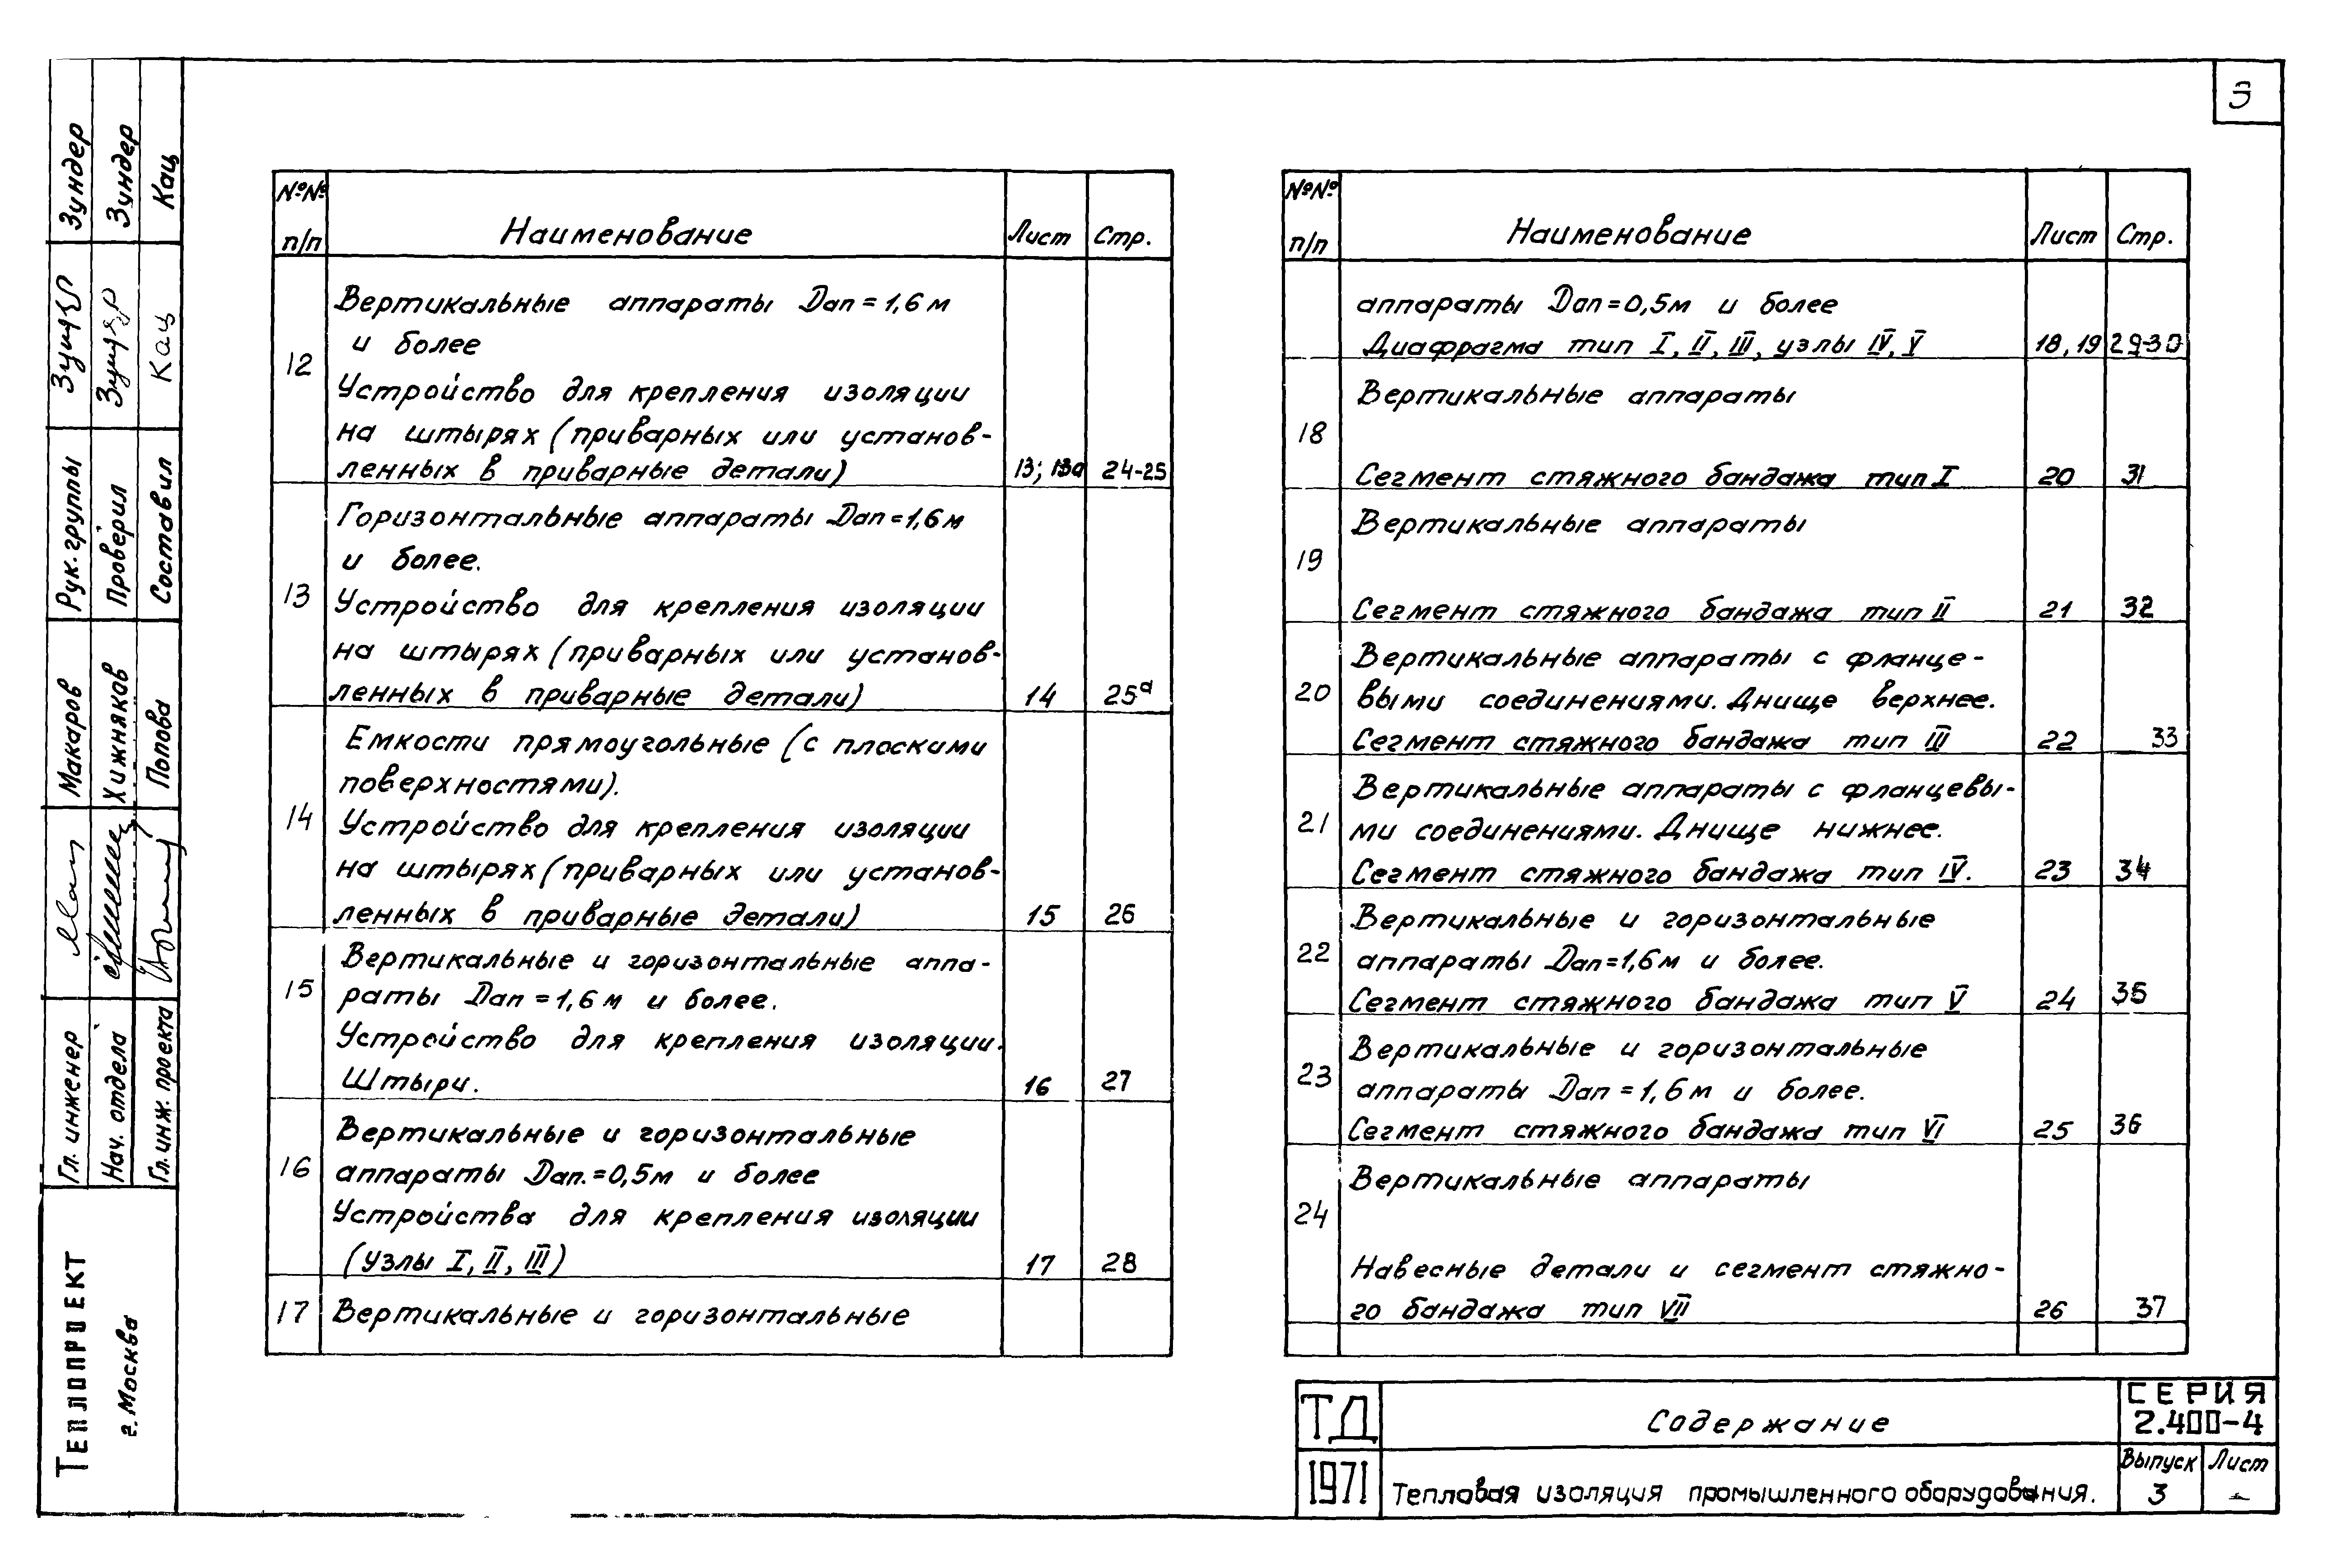 3
№№ п/п Наименование Лист Стр.
Вертикальные аппараты Dап = 1,6 м
и более
12
Устройство для крепления изоляции
на штырях (приварных или установ-
ленных в приварные детали) 13; 13а 24-25
Горизонтальные аппараты Dап = 1,6 м
и более.
13 Устройство для крепления изоляции
на штырях (приварных или установ-
ленных в приварные детали) 14 25а
Емкости прямоугольные (с плоскими
поверхностями).
14 Устройство для крепления изоляции
на штырях (приварных или установ-
ленных в приварные детали) 15 26
Вертикальные и горизонтальные аппа-
15 раты Dап = 1,6 м и более.
Устройство для крепления изоляции.
Штыри. 16 27
Вертикальные и горизонтальные
16 аппараты Dап. = 0,5 м и более
Устройства для крепления изоляции
(узлы I, II, III) 17 28
17 Вертикальные и горизонтальные
№№ п/п Наименование Лист Стр.
аппараты Dап = 0,5 м и более
Диафрагма тип I, II, III, узлы IV, V 18, 19 29-30
Вертикальные аппараты
18
Сегмент стяжного бандажа тип I 20 31
Вертикальные аппараты
19
Сегмент стяжного бандажа тип II 21 32
Вертикальные аппараты с фланце-
20 выми соединениями. Днище верхнее.
Сегмент стяжного бандажа тип III 22 33
Вертикальные аппараты с фланцевы-
21 ми соединениями. Днище нижнее.
Сегмент стяжного бандажа тип IV. 23 34
Вертикальные и горизонтальные
22 аппараты Dап = 1,6 м и более.
Сегмент стяжного бандажа тип V 24 35
Вертикальные и горизонтальные
23 аппараты Dап = 1,6 м и более.
Сегмент стяжного бандажа тип VI 25 36
Вертикальные аппараты
24
Навесные детали и сегмент стяжно-
го бандажа тип VII 26 37
ТД Содержание СЕРИЯ
2.400-4
1971 Тепловая изоляция промышленного оборудования. Выпуск 3 Лист -
ТЕПЛОПРОЕКТ
г. Москва
Гл. инженер Макаров Рук. группы Зундер
Нач. отдела Хижняков Проверил Зундер
Гл. инж. проекта Попова Составил Кац Кац